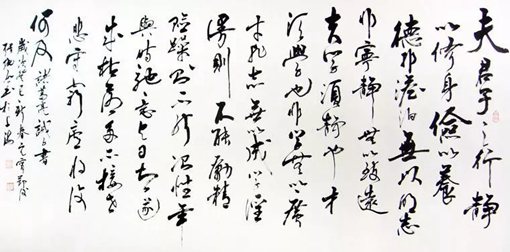 夫君子之行静
以修身儉以養
德非澹泊無以明志
非寧静無以致遠
夫学須静也才
須学也非学無以廣
才非志無以成学淫
漫則不能勵精
險躁則不能冶性年
與時馳意與日去遂
成枯落多不接世
悲守窮廬將復
何及 諸葛亮誡子書
歲次癸巳新春